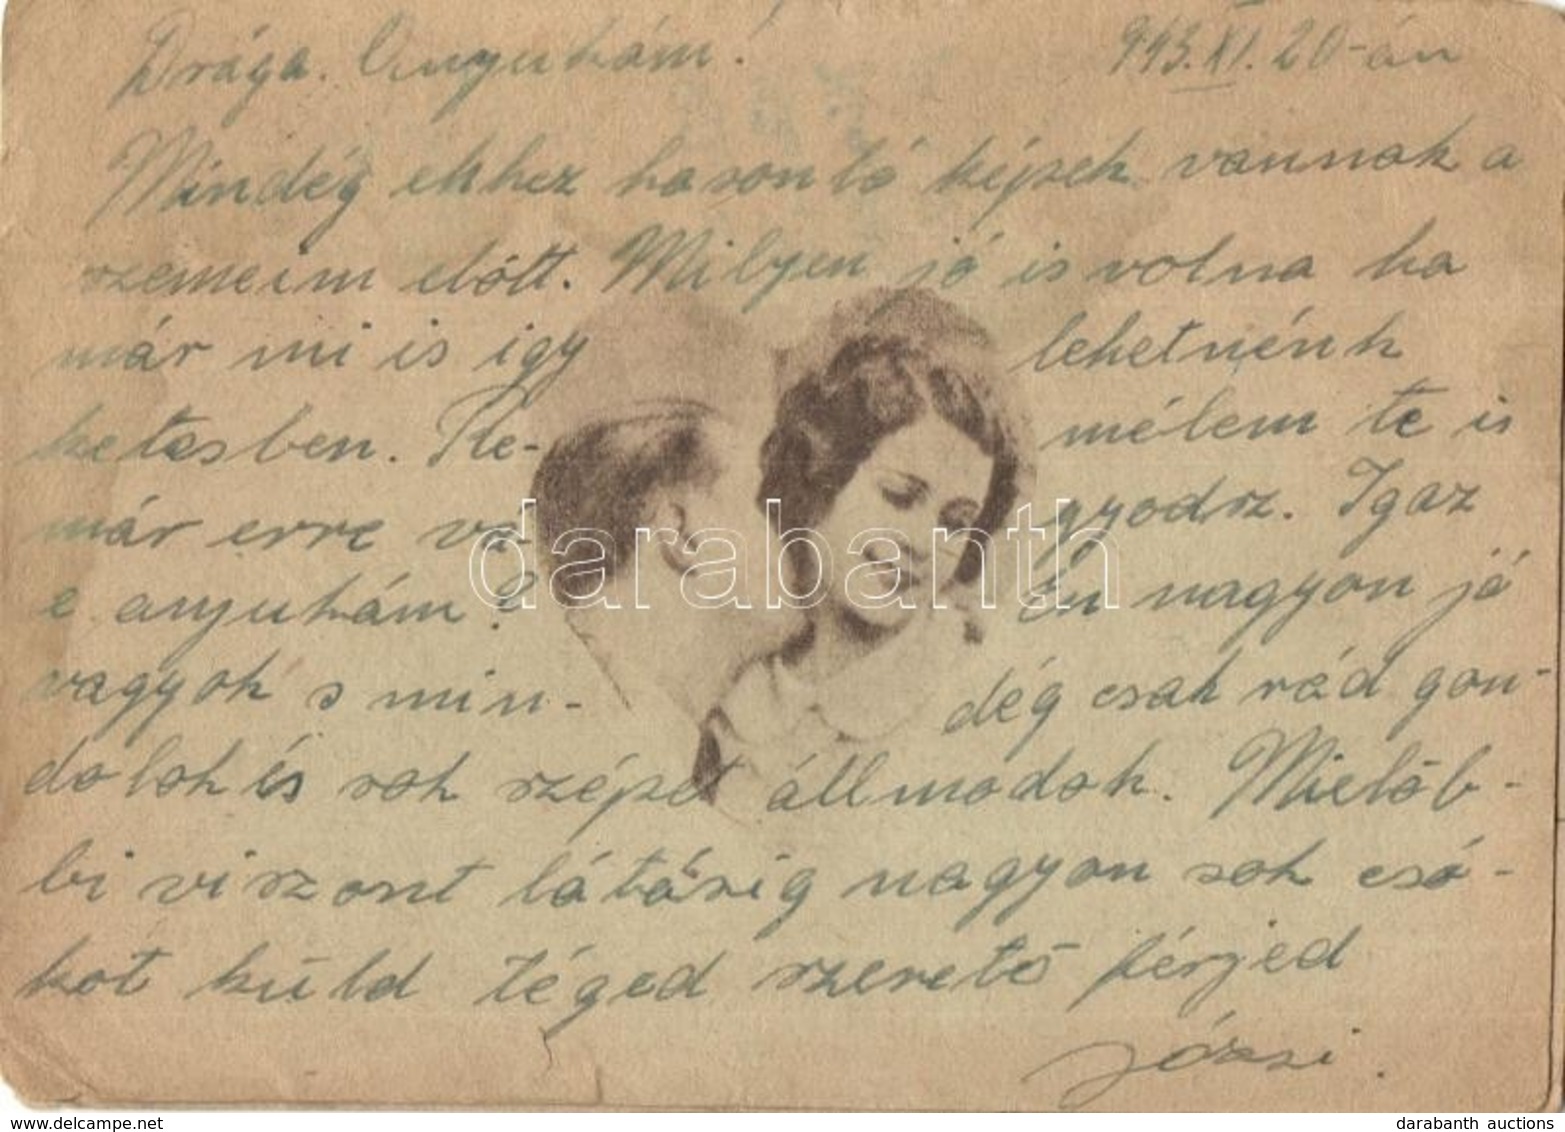 Drága Anyukám! 943. XI. 20-án
Mindég ehhez hasonló képsek vannak a
szemeim előtt. Milyen jó is volna ha
már mi is igy lehetnénk
ketesben. Re- mélem te is
már erre va- gyodsz. Igaz
e anyukám? Én nagyon jó
vagyok s min- dég csak rád gon-
dolok és sok szépet állmodok. Mielőb-
bi viszont látásig nagyon sok csó-
kot küld téged szerető férjed
Józsi.
darabanth
www.delcampe.net
darabanth auctions